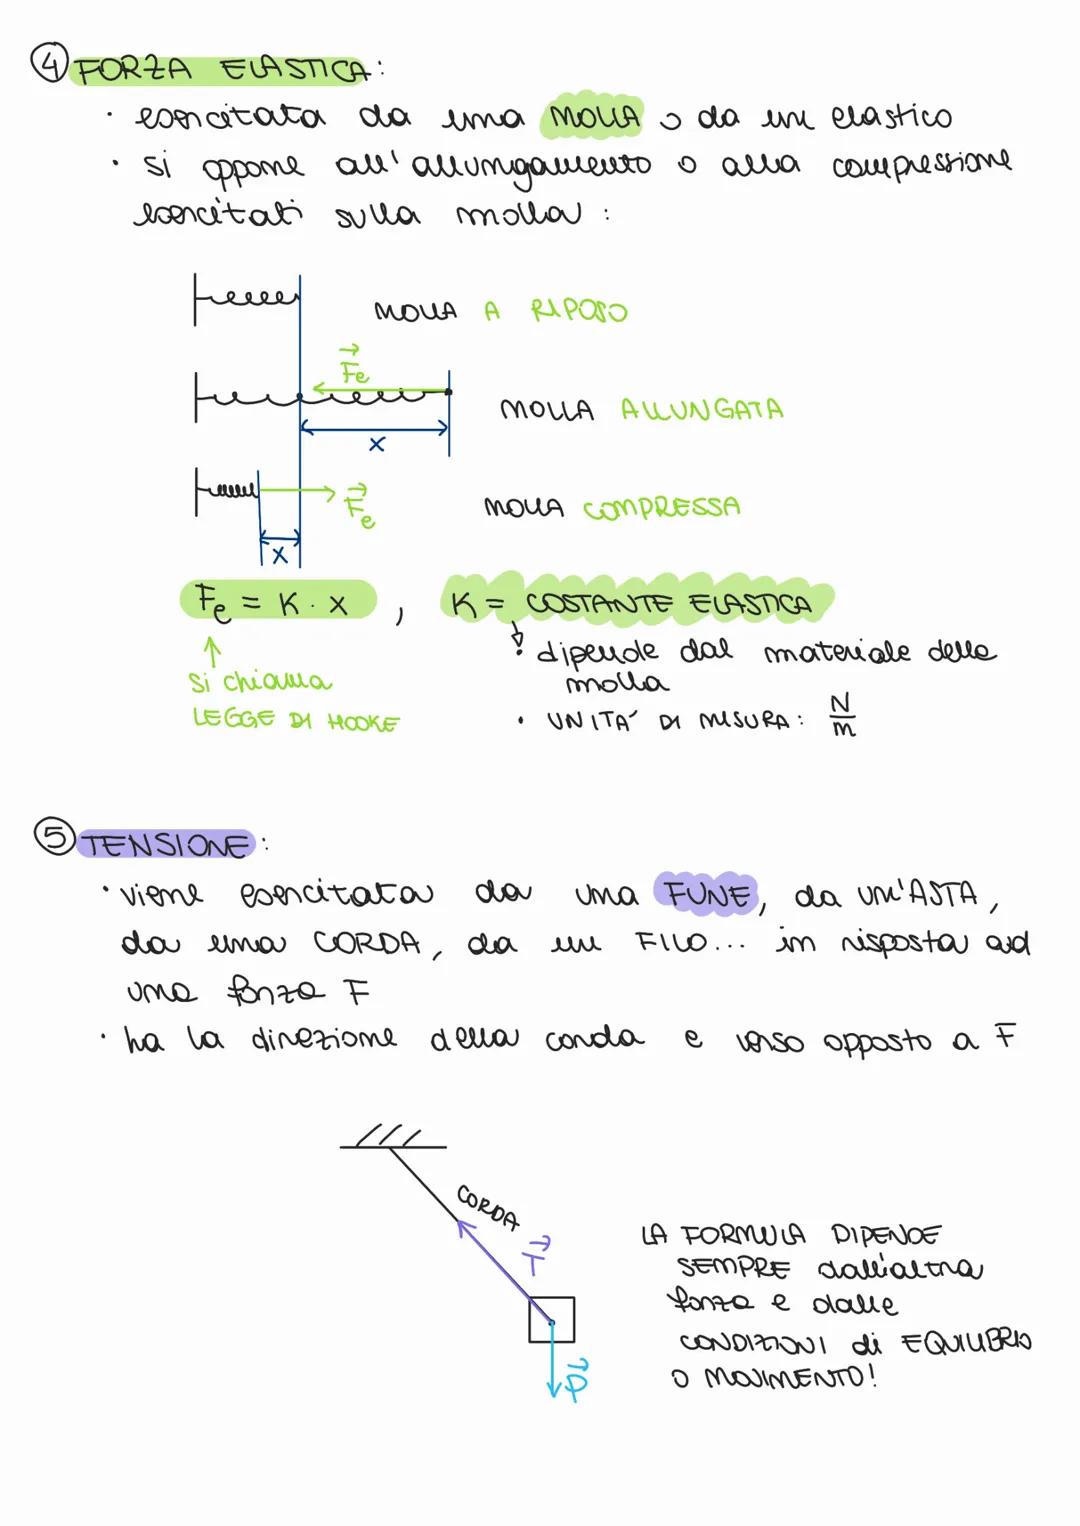 4 FORZA ELASTICA:
· esercitata da una MOLLA o da un elastico
· si oppone all'allungamento o alla compressione
esercitati sulla molla:
MOLLA A RIPOSO
Fe
MOLLA ALLUNGATA
x
Fe
MOLLA COMPRESSA
x
Fe = K · x , K = COSTANTE ELASTICA
· dipende dal materiale della
molla
si chiama
LEGGE DI HOOKE
· UNITA' DI MISURA: N/m
5 TENSIONE:
· viene esercitata da una FUNE, da UN'ASTA,
da una CORDA, da un FILO... in risposta ad
una forza F
· ha la direzione della corda e verso opposto a F
CORDA
T
P
LA FORMULA DIPENDE
SEMPRE dall'altra
forza e dalle
CONDIZIONI di EQUILIBRIO
O MOVIMENTO!